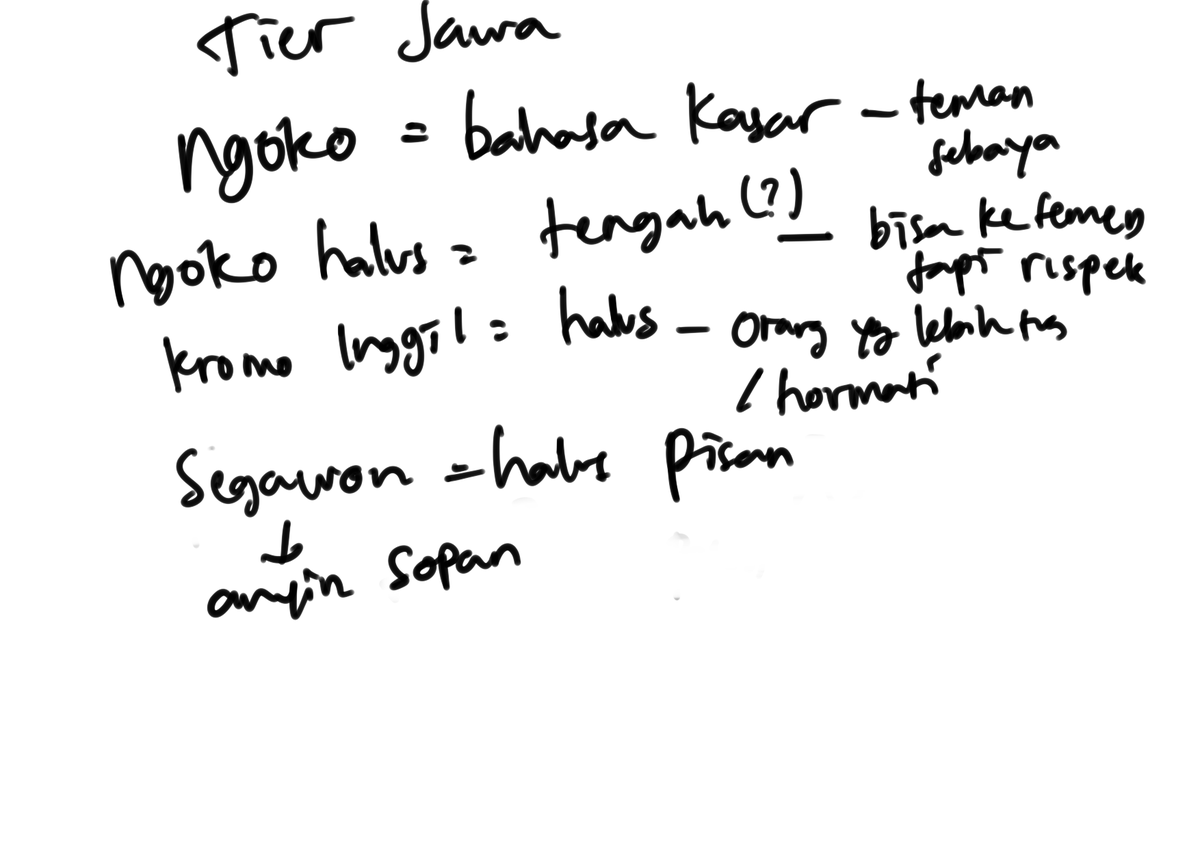 Tier Jawa
Ngoko = bahasa kasar – teman
sebaya
Ngoko halus = tengah (?) – bisa ke temen
tapi rispek
kromo Inggil = halus – orang yg lebih tua
/ hormati
Segawon = halus pisan
↓
anjin sopan